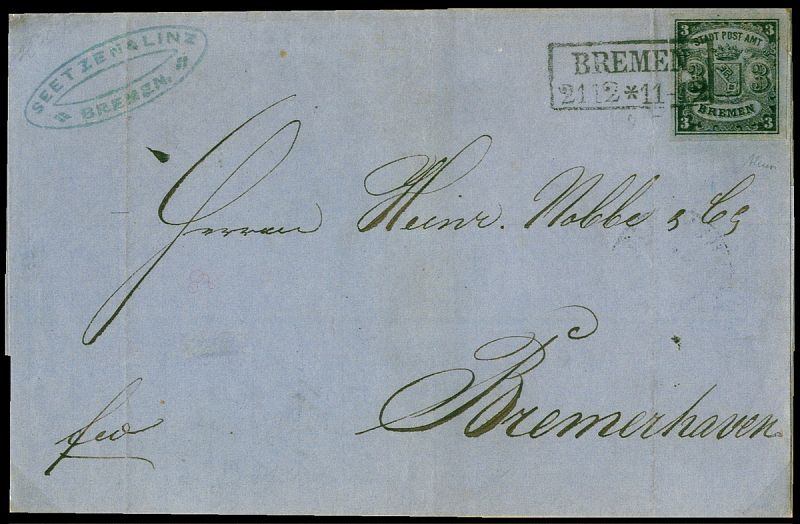 SEETZEN & LINZ
BREMEN.
BREMEN
21 12 * 11-
3 3
STADT POST AMT
3 3
BREMEN
3 3
Herrn Heinr. Nobbe & Co
Bremerhaven.
fco